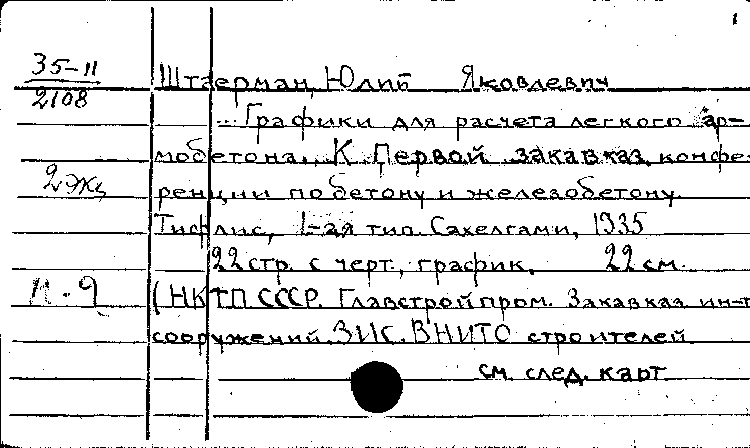 1
35-11
2108
Штаерман, Юлий Яковлевич
... Графики для расчета легкого ар-
мобетона... К Первой закавказ. конфе-
2 экз
ренции по бетону и железобетону
Тифлис, 1-ая тип. Сахелгами, 1935
22 стр. с черт., график. 22 см.
п. 9
(НКТП СССР. Главстройпром. Закавказ. ин-т
сооружений. ЗИС. ВНИТО строителей
см. след. карт